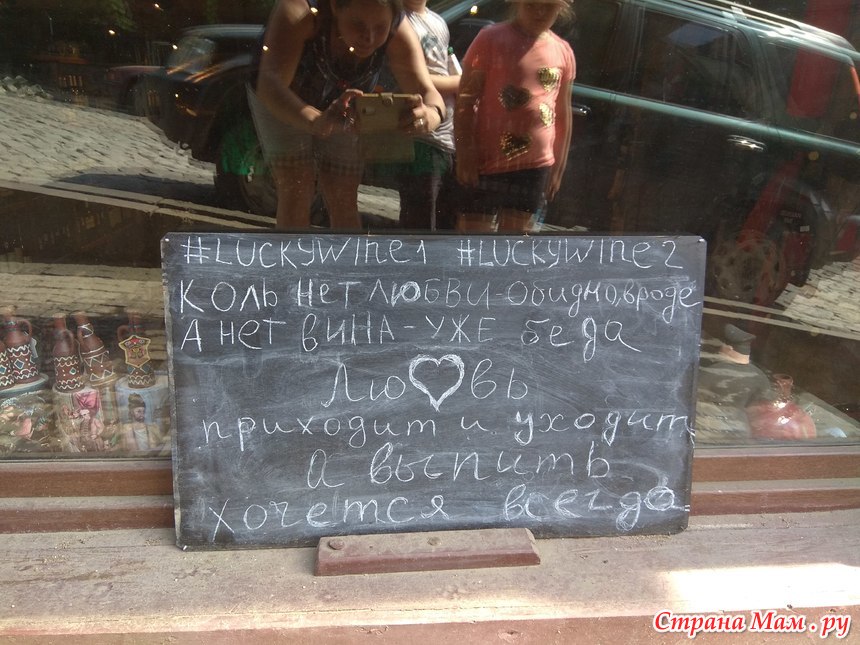 #LUCKYWINE1 #LUCKYWINE2
КОЛЬ НЕТ ЛЮБВИ-Обидно, вроде
А НЕТ ВИНА-УЖЕ беда
Лю♡вь
приходит и уходит
а выпить
хочется всегда
Страна Мам.ру